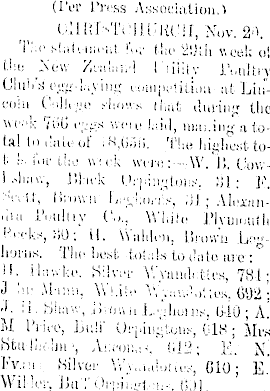 (Per Press Association.)
CHRISTCHURCH, Nov. 20.
The statement for the 29th week of
the New Zealand Utility Poultry
Club's egg-laying competition at Lin-
coln College shows that during the
week 766 eggs were laid, making a to-
tal to date of The highest to-
tals for the week were:—W. B. Cow-
lishaw, Black Orpingtons, 31; F.
Scott, Brown Leghorns, 31; Alexan-
dra Poultry Co., White Plymouth
Rocks, 30; H. Walden, Brown Leg-
horns. The best totals to date are:
H. Hawke, Silver Wyandottes, 781;
Mann, White Wyandottes, 692;
J. H. Shaw, Brown Leghorns, 640; A.
M Price, Buff Orpingtons, 618; Mrs
Anconas, 612; E. N.
Evans Silver Wyandottes, 610; E.
Buff Orpingtons,